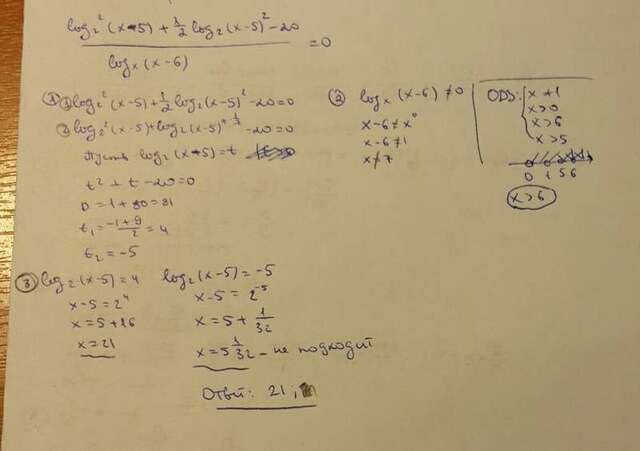 log₂²(x-5) + 1/2 log₂(x-5)² - 20
logₓ(x-6)
= 0
① 1) log₂²(x-5) + 1/2 log₂(x-5)² - 20 = 0
2) log₂²(x-5) + log₂(x-5) - 20 = 0
Пусть log₂(x-5) = t
t² + t - 20 = 0
D = 1 + 80 = 81
t₁ = (-1+9)/2 = 4
t₂ = -5
② logₓ(x-6) ≠ 0
x-6 ≠ x⁰
x-6 ≠ 1
x ≠ 7
ОДЗ:
x ≠ 1
x > 0
x > 6
x > 5
0 1 5 6
x > 6
③ log₂(x-5) = 4
x-5 = 2⁴
x = 5+16
x = 21
log₂(x-5) = -5
x-5 = 2⁻⁵
x = 5 + 1/32
x = 5 1/32 - не подходит
Ответ: 21;